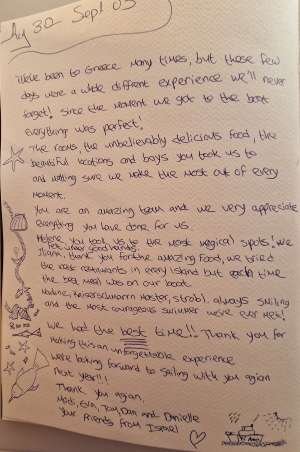 Aug 30 Sept 03
We've been to Greece many times, but those few
days were a wide diffrent experience we'll never
forget! Since the moment we got to the boat
everything was perfect!
The rooms, the unbelievably delicious food, the
beautiful locations and bays you took us to
and making sure we make the most out of every
moment.
You are an amazing team and we very appreciate
everything you have done for us.
you took us to the most magical spots! We
felt under good hands.
thank you for the amazing food, we tried
the restaurants in every island but each time
the best meal was on our boat.
Nadine, Keiserschmarrn master, always smiling
and the most courageous swimmer we've ever met!
We had the best time!! Thank you for
making this an unforgettable experience
We're looking forward to sailing with you again
Next year!!!
Thank you again,
Dan and Danielle
Your friends from Israel